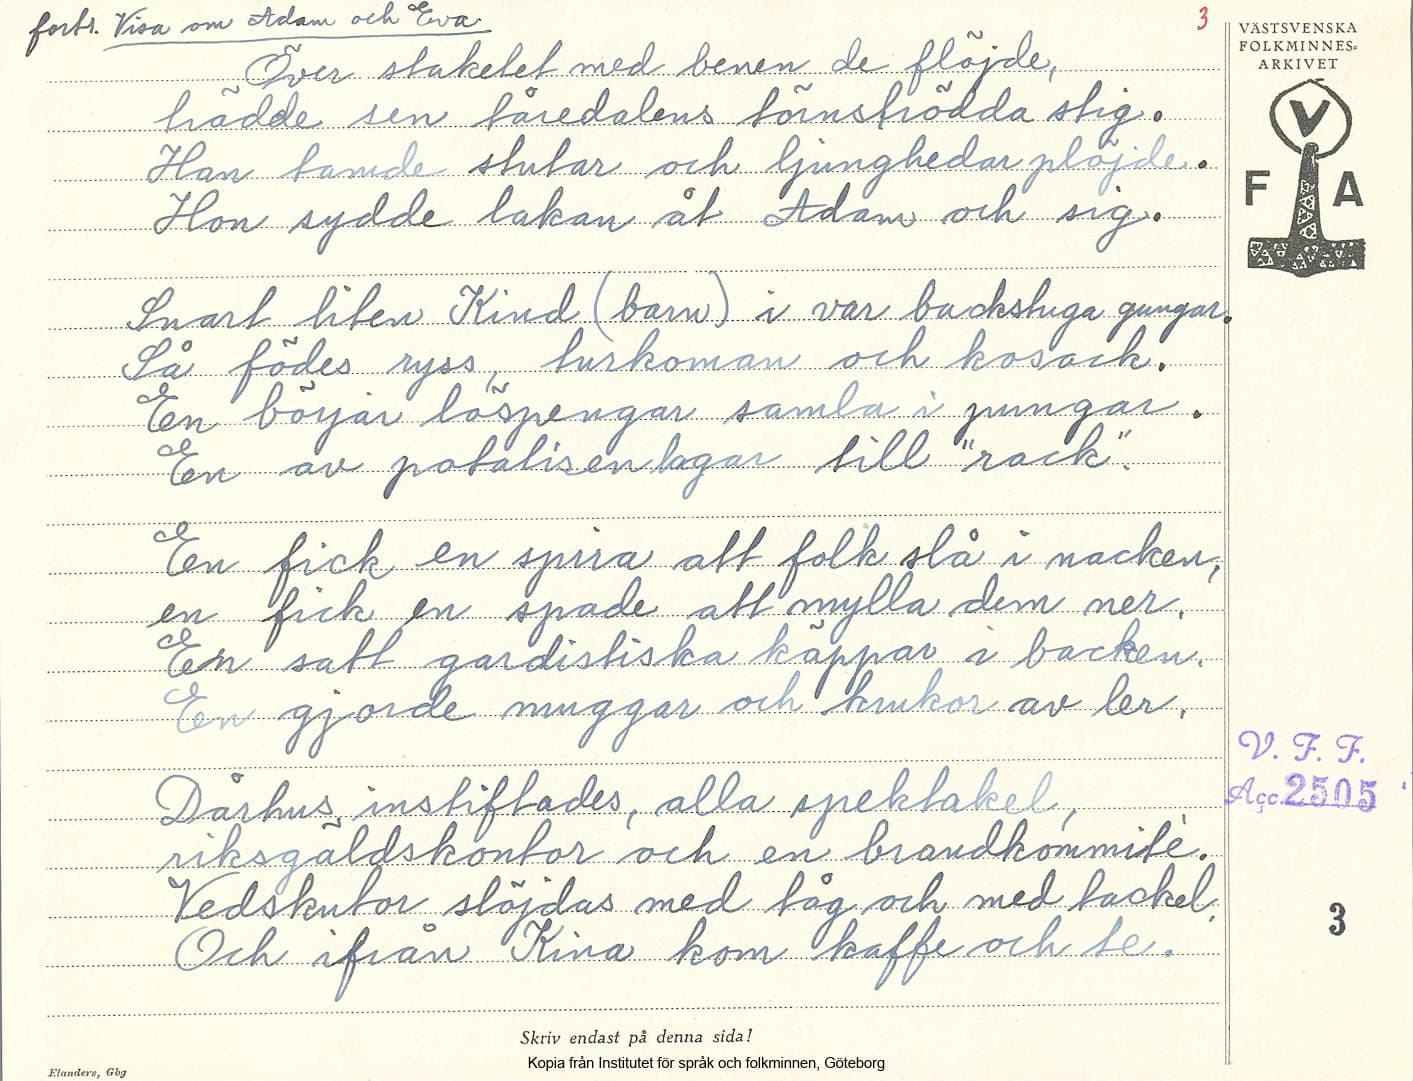 forts. Visa om Adam och Eva
3
Över staketet med benen de flöjde,
trädde sen tåredalens törnströdda stig.
Han tamde stutar och ljunghedar plöjde.
Hon sydde lakan åt Adam och sig.
Snart liten Kind (barn) i var backstuga gungar.
Så födes ryss, turkoman och kosack.
En börjar löspengar samla i pungar.
En av potatisen lagar till "rack".
En fick en spira att folk slå i nacken,
en fick en spade att mylla dem ner.
En satt gardistiska käppar i backen.
En gjorde muggar och krukor av ler.
Dårhus instiftades, alla spektakel,
riksgäldskontor och en brandkommité.
Vedskutor slöjdas med tåg och med tackel.
Och ifrån Kina kom kaffe och te.
VÄSTSVENSKA
FOLKMINNES-
ARKIVET
V
F A
V. F. F.
Acc. 2505
3
Skriv endast på denna sida!
Kopia från Institutet för språk och folkminnen, Göteborg
Elanders, Gbg